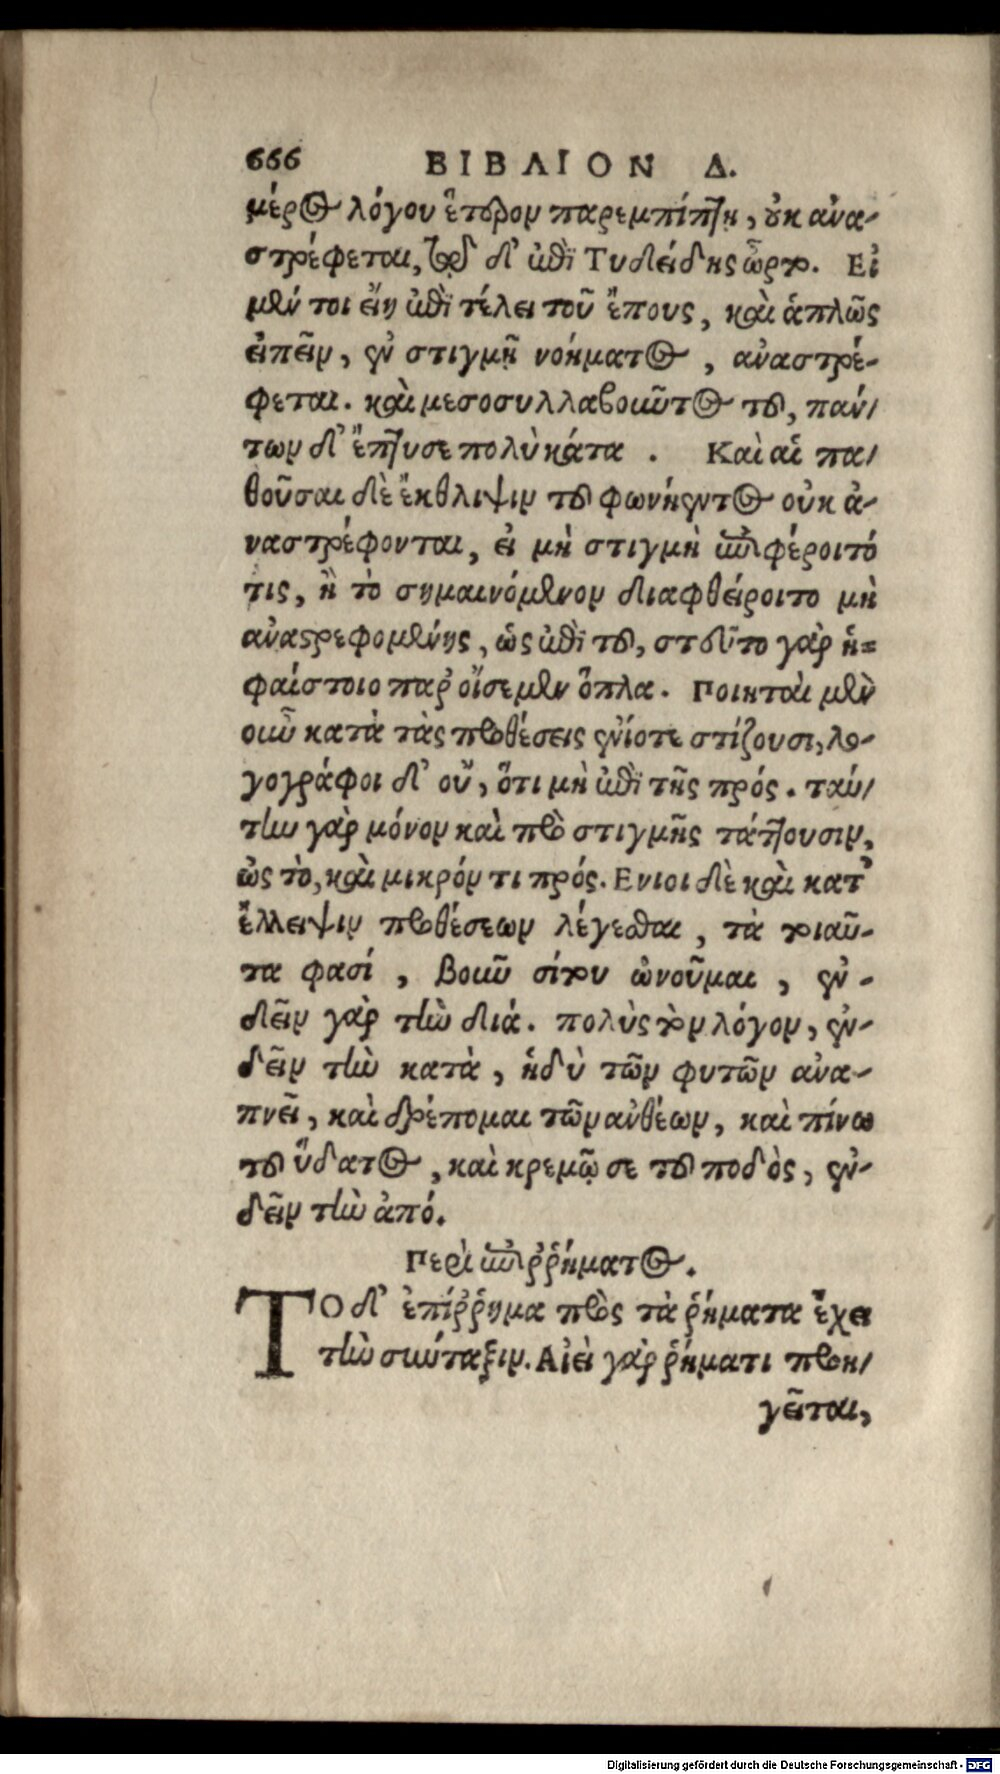 666 ΒΙΒΛΙΟΝ Δ.
μέρος λόγου ἕτερον παρεμπίπτῃ, οὐκ ανα-
στρέφεται, δ' ἐπὶ Τυδείδης ὦρτο. Εἰ
μέν τοι εἴη ἐπὶ τέλει τοῦ ἔπους, καὶ ἁπλῶς
εἰπεῖν, ἐν στιγμῇ νοήματος, αναστρέ-
φεται. καὶ μεσοσυλλαβοιῶτος του, πάν-
των δ' ἔπτυσε πολὺ κάτα. Καὶ αἱ πα-
θοῦσαι δὲ ἔκθλιψιν του φωνήεντος οὐκ ἀ-
ναστρέφονται, εἰ μὴ στιγμὴ ἐπιφέροιτό
τις, ἢ τὸ σημαινόμενον διαφθείροιτο μὴ
ανάστρεφομένης, ὡς ἐπὶ του, στεῦτο γὰρ ἡ-
φαίστοιο παρ' οἴσεμεν ὅπλα. Ποιηταὶ μὲν
οιῶ κατὰ τὰς προθέσεις ἐνίοτε στίζουσι, λο-
γογράφοι δ' οὔ, ὅτι μὴ ἐπὶ τῆς πρός. ταύ-
την γὰρ μόνον καὶ πρὸ στιγμῆς τάττουσιν,
ὡς τὸ, καὶ μικρόν τι πρός. Ενιοι δὲ καὶ κατ'
ἔλλειψιν προθέσεων λέγεσθαι, τὰ τοιαῦ-
τα φασί, βοιῶ σίτου ὠνοῦμαι, ἐν-
δεῖν γὰρ τὴν διά. πολὺς τὸν λόγον, ἐν-
δεῖν τὴν κατὰ, ἡδὺ τῶν φυτῶν ανα-
πνεῖ, καὶ δρέπομαι τῶν ανθέων, καὶ πίνω
του ὕδατος, καὶ κρεμῶ σε του ποδὸς, ἐν-
δεῖν τὴν ἀπό.
Περὶ ἐπιῤῥήματος.
ΤΟ δ' ἐπίῤῥημα πρὸς τὰ ῥήματα ἔχει
τὴν σύνταξιν. Αἰεὶ γὰρ ῥήματι προη-
γεῖται,
Digitalisierung gefördert durch die Deutsche Forschungsgemeinschaft - DFG